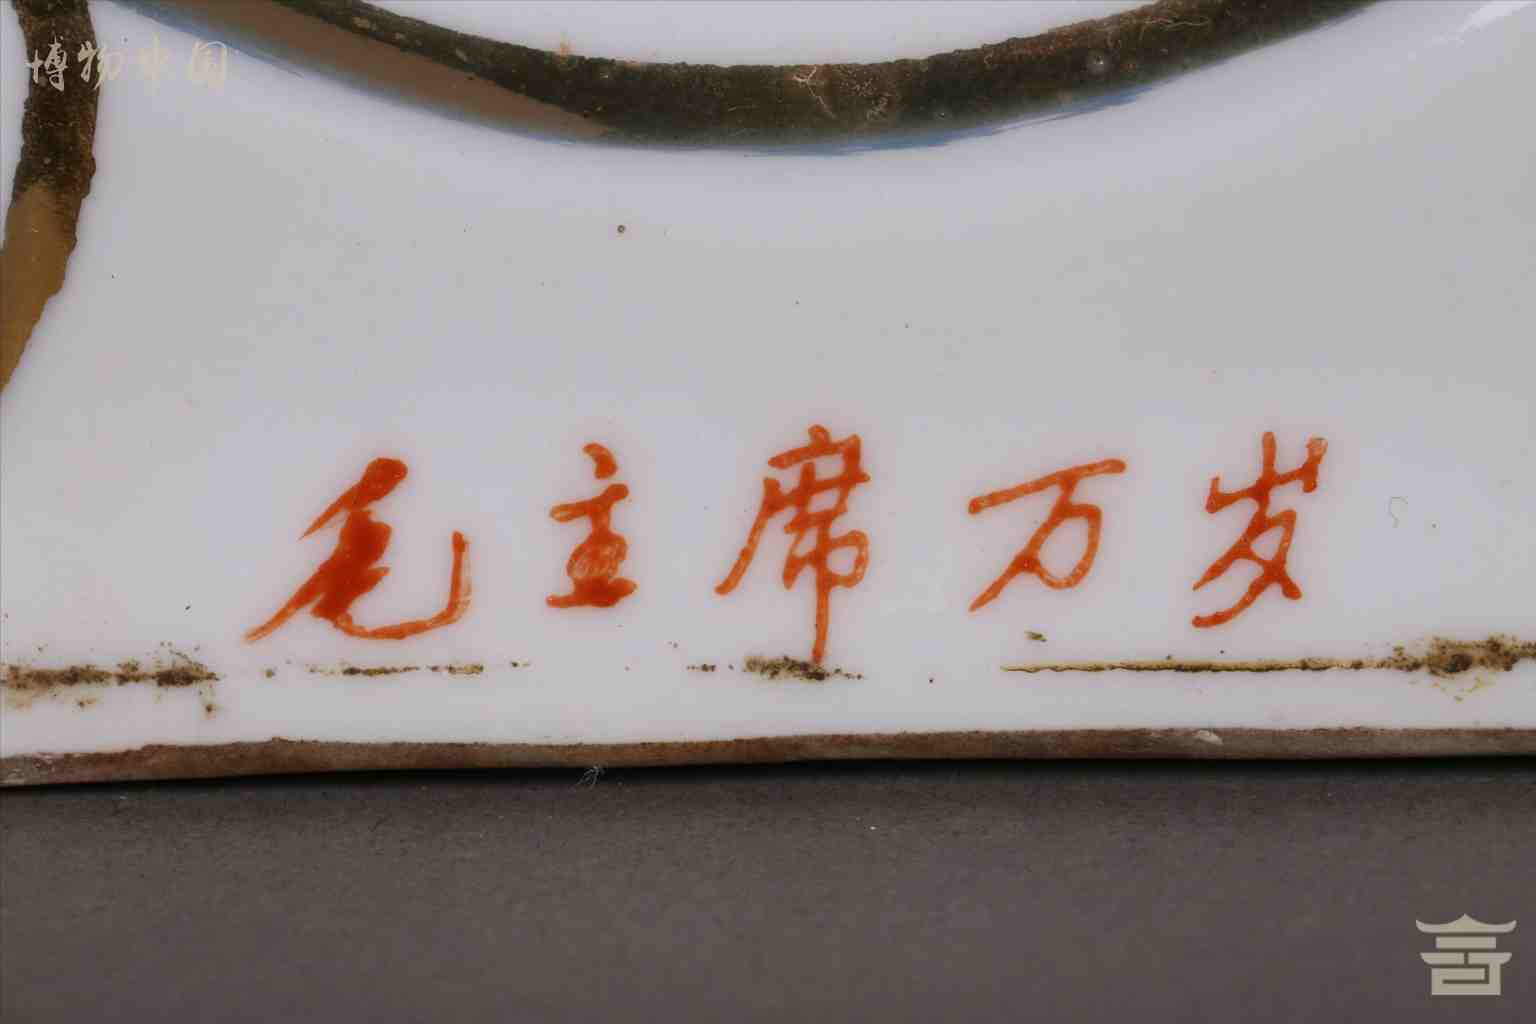 博物中国
毛主席万岁